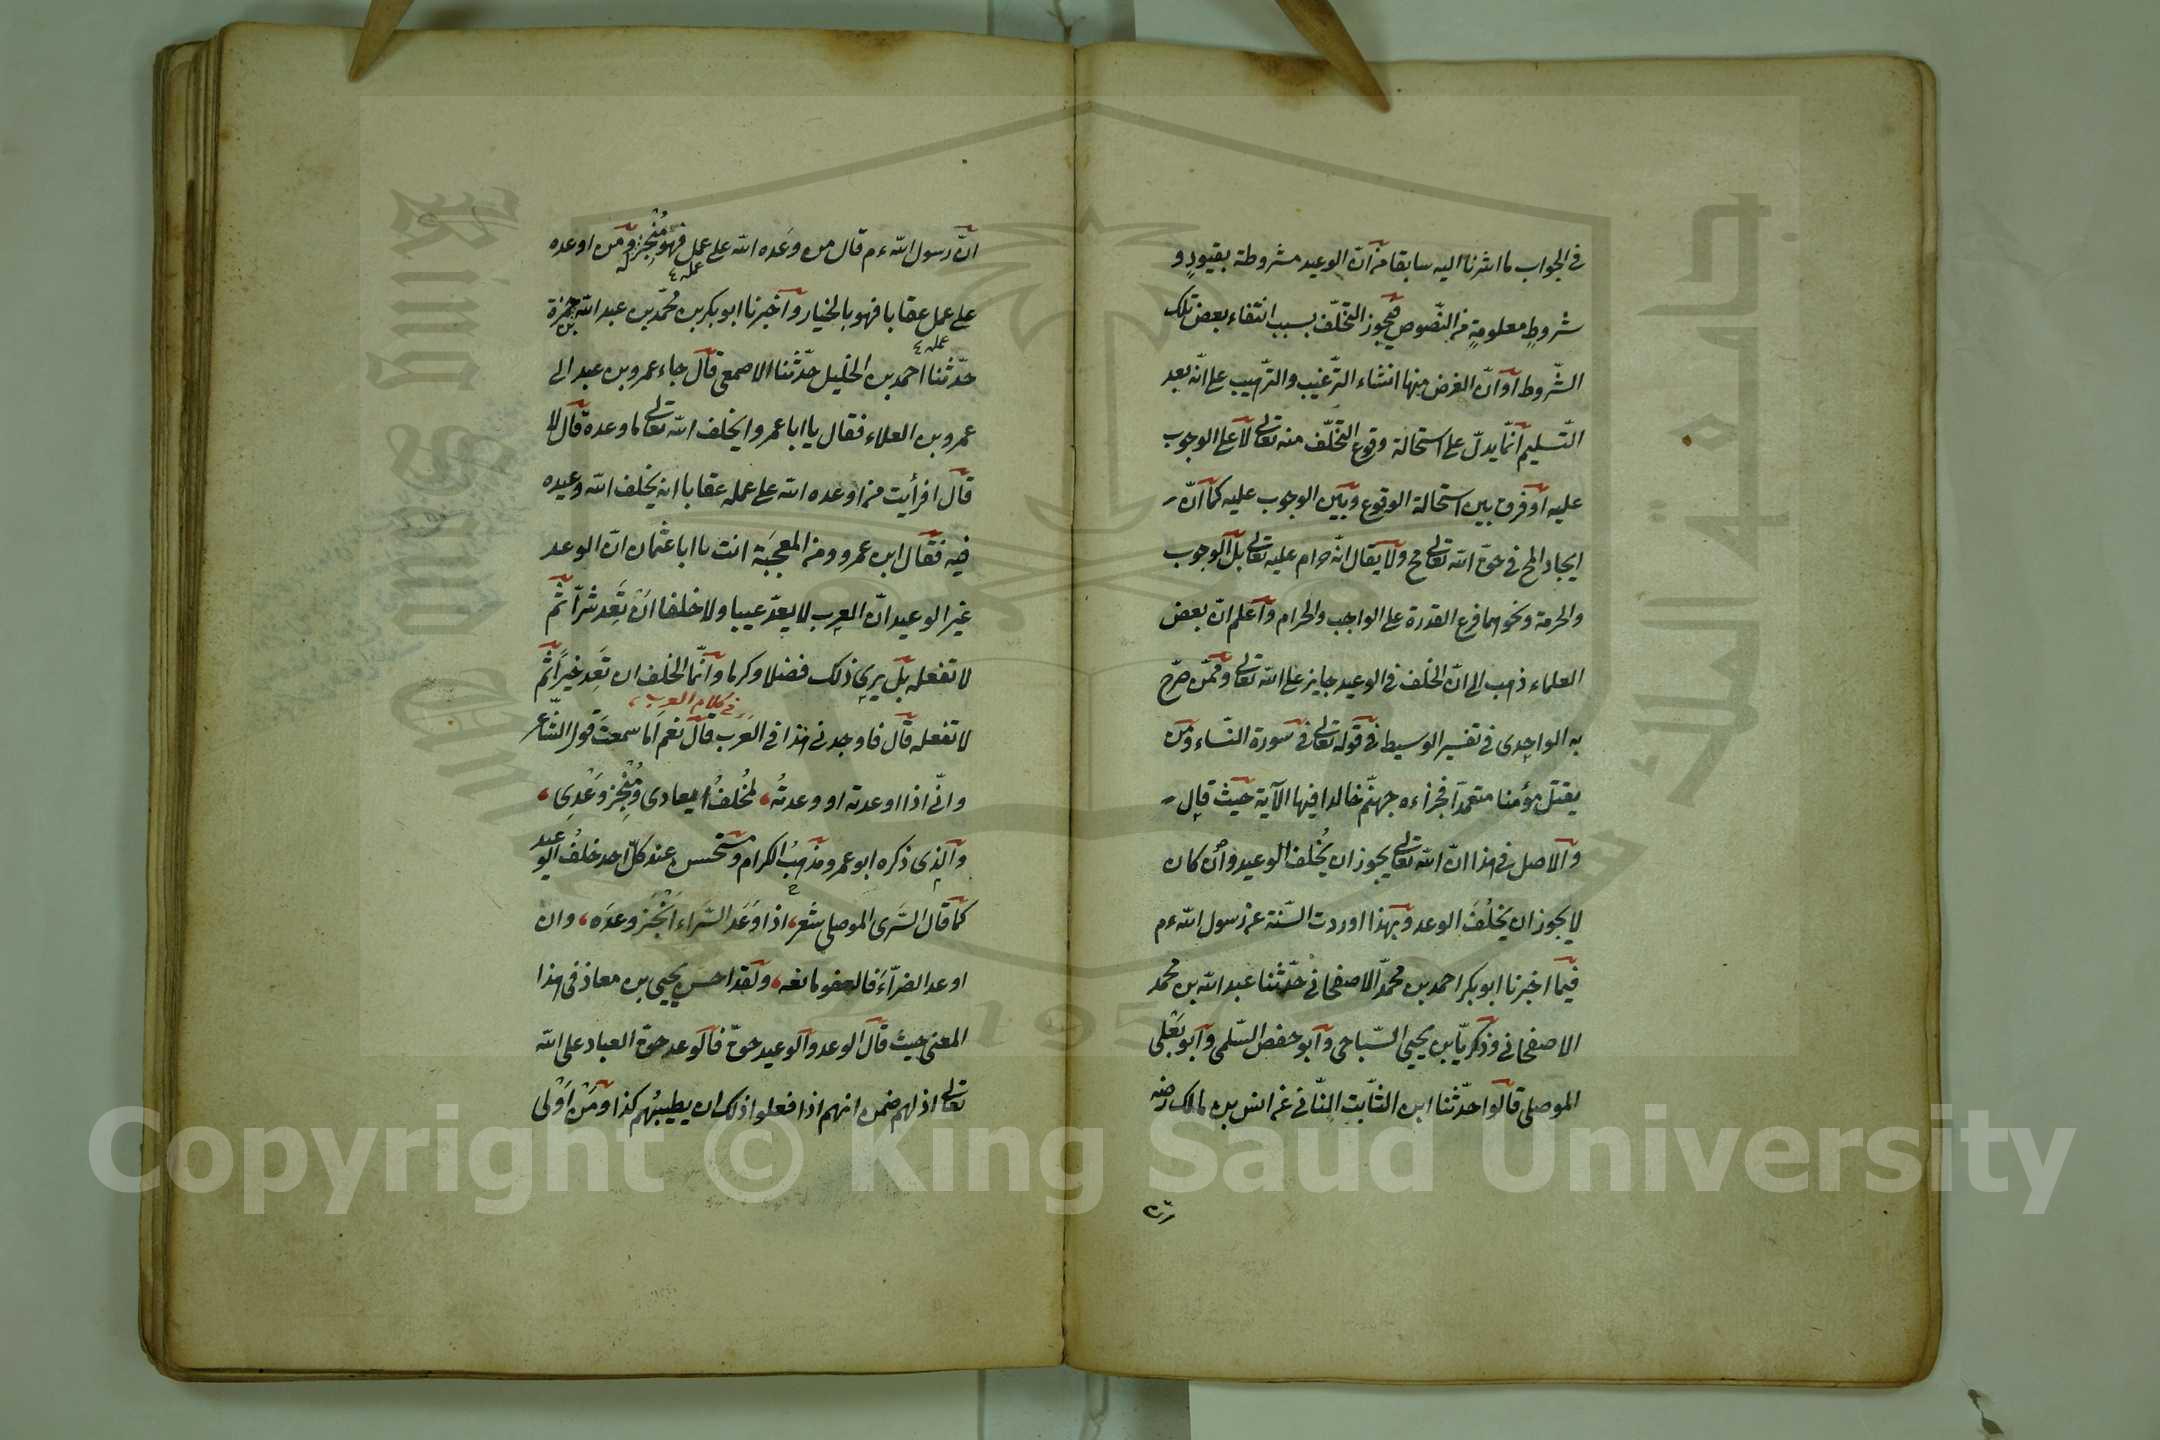 في الجواب ما اشرنا اليه سابقا من ان الوعيد مشروطة بقيود و
شروط معلومة من النّصوص فيجوز التخلّف بسبب انتفاء بعض تلك
الشّروط او انّ الغرض منها انشاء التّرغيب والتّرهيب على انّه بعد
التّسليم انّما يدلّ على استحالة وقوع التخلّف منه تعالى لا على الوجوب
عليه او فرق بين استحالة الوقوع وبين الوجوب عليه كما انّ
ايجاد المح في حق الله تعالى مح ولا يقال انّه حرام عليه تعالى بل الوجوب
والحرمة ونحوهما فرع القدرة على الواجب والحرام واعلم انّ بعض
العلماء ذهب الى انّ الخلف في الوعيد جايز على الله تعالى وممّن صرّح
به الواحدى في تفسير الوسيط في قوله تعالى في سورة النّساء ومن
يقتل مؤمنا متعمدا فجزاءه جهنّم خالدا فيها الآية حيث قال
والاصل في هذا انّ الله تعالى يجوز ان يُخلف الوعيد وان كان
لا يجوز ان يخلف الوعد وبهذا اوردت السّنة عن رسول الله ءم
فيما اخبرنا ابو بكر احمد بن محمّد الاصفحانى حدّثنا عبد الله بن محمد
الاصفحانى وذكريّا بن يحيى السّباحى وابو حفص السّلمى وابو يَعْلى
الموصلى قالوا حدّثنا ابن الثّابت البنّانى عن انس بن مالك رضه
انّ رسول الله ءم قال من وعَده الله على عمل فهو مُنْجِزٌ له ومن اوعده
على عمل عقابا فهو بالخيار واخبرنا ابو بكر بن محمّد بن عبد الله بن حمزة
عمله ٤
حدّثنا احمد بن الخليل حدّثنا الاصمعى قال جاء عمرو بن عبد الى
عمله ٤
عمرو بن العلاء فقال يا ابا عمرو ايخلف الله تعالى ما وعده قال لا
قال افرأيت من اوعده الله على عمله عقابا انه يخلف الله وعيده
فيه فقال ابن عمرو ومن المعجبَة انت يا ابا عثمان انّ الوعد
غير الوعيد انّ العرب لا يعدّ عيبا ولا خلفا انْ تَعِد شرّا ثم
لا تفعله بل يرى ذلك فضلا وكرما وانّما الخلف ان تَعِد خيراً ثم
في كلام العرب
لا تفعله قال فاوجدنى هذا في العرب قال نعم اما سمعتَ قول الشّاعر
وانّى اذا اوعدته او وعدتُه، لمُخلفُ ايعادى ومُنْجِز وَعْدِى،
والّذى ذكره ابو عمرو مذهبُ الكرام ومستحسن عند كلّ احد خلفُ الوعيد
كما قال السّرى الموصلى شعر، اذا وَعَد السّراء انْجَز وعدَه، وان
اوعد الضرّاءَ فالعفو مانعه، ولقد احسن يحيى بن معاذ فى هذا
المعنى حيث قال الوعد والوعيد حقّ فالوعد حقّ العباد على الله
تعالى اذ لهم ضمن انهم اذا فعلوا ذلك ان يطيبُهم كذا ومَنْ اَوْلى